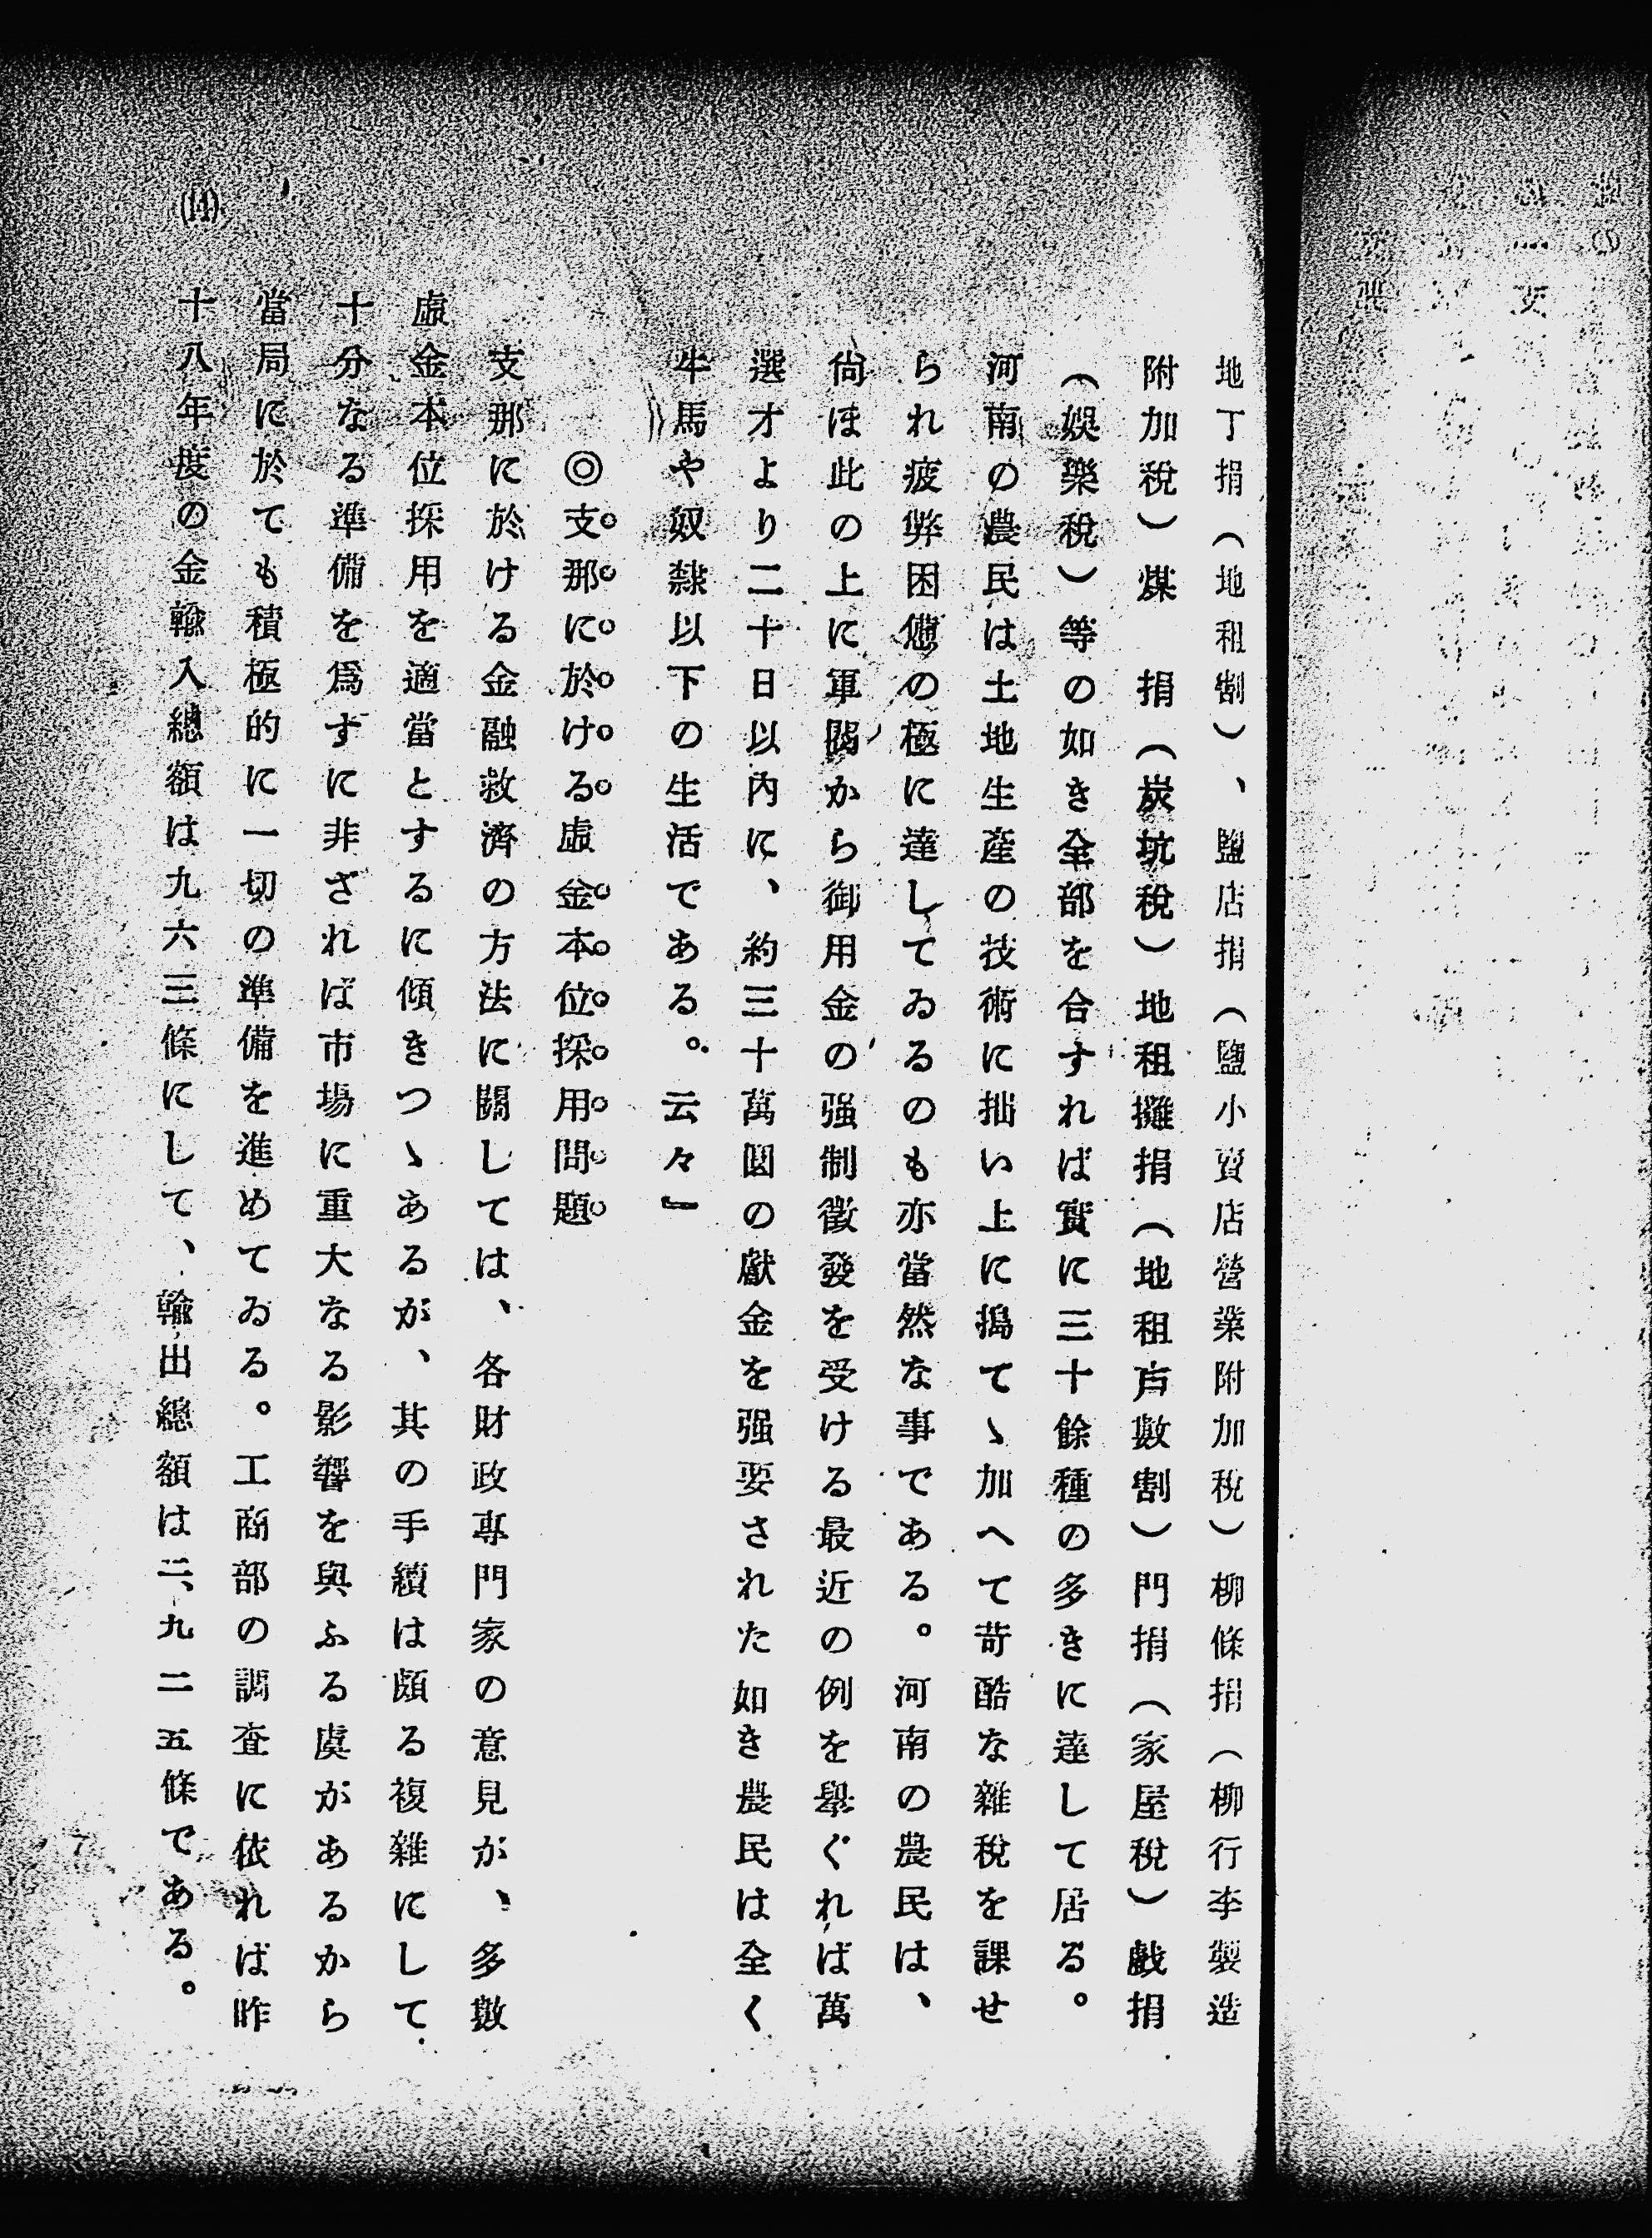 地丁捐（地租割）、鹽店捐（鹽小賣店營業附加稅）柳條捐（柳行李製造
附加稅）煤　捐（炭坑稅）地租攤捐（地租戶數割）門捐（家屋稅）戲捐
（娛樂稅）等の如き全部を合すれば實に三十餘種の多きに達して居る。
河南の農民は土地生產の技術に拙い上に搗てゝ加へて苛酷な雜稅を課せ
られ疲弊困憊の極に達してゐるのも亦當然な事である。河南の農民は、
尙ほ此の上に軍閥から御用金の强制徵發を受ける最近の例を擧ぐれば萬
選才より二十日以內に、約三十萬圓の獻金を强要された如き農民は全く
牛馬や奴隸以下の生活である。云々』
◎支那に於ける虛金本位採用問題
支那に於ける金融救濟の方法に關しては、各財政專門家の意見が、多數
虛金本位採用を適當とするに傾きつゝあるが、其の手續は頗る複雜にして
十分なる準備を爲すに非ざれば市場に重大なる影響を與ふる虞があるから
當局に於ても積極的に一切の準備を進めてゐる。工商部の調査に依れば昨
十八年度の金輸入總額は九六三條にして、輸出總額は二、九二五條である。
(14)